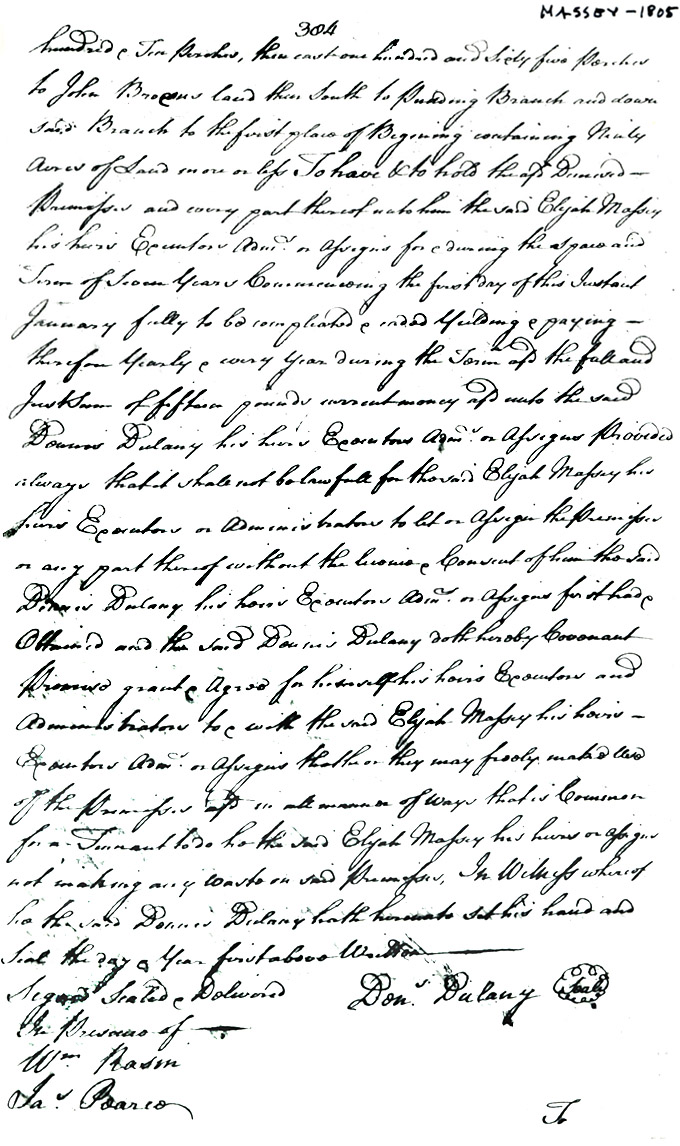 MASSEY - 1805
384
hundred & Ten Perches, then east one hundred and Sixty five Perches
to John Browns land then South to Punding Branch and down
said Branch to the first place of Begining containing Ninty
Acres of Land more or less To have & to hold the afd Demised -
Premisses and every part thereof unto him the said Elijah Massey
his heirs Executors Admrs or Assigns for & during the space and
Term of Seven Years Commencing the first day of this Instant
January fully to be compleated & ended Yielding & paying -
therefore Yearly & every Year during the Term afd the full and
Just Sum of fifteen pounds current money afd unto the said
Dennis Dulany his heirs Executors Admrs or Assigns Provided
always that it shall not be lawfull for the said Elijah Massey his
heirs Executors or Administrators to let or Assign the Premisses
or any part thereof without the licence & Consent of him the said
Dennis Dulany his heirs Executors Admrs or Assigns first had &
Obtained and the said Dennis Dulany doth hereby Covenant
Promise grant & Agree for himself his heirs Executors and
Administrators to & with the said Elijah Massey his heirs -
Executors Admrs or Assigns that he or they may freely make Use
of the Premisses afd in all manner of ways that is Common
for a Tennant to do he the said Elijah Massey his heirs or Assigns
not making any waste on said Premisses, In Witness whereof
he the said Dennis Dulany hath hereunto set his hand and
Seal the day & Year first above Written
Signed Sealed & Delivered Dens Dulany Seal
In Presence of
Wm Rasin
Jas Pearce
To